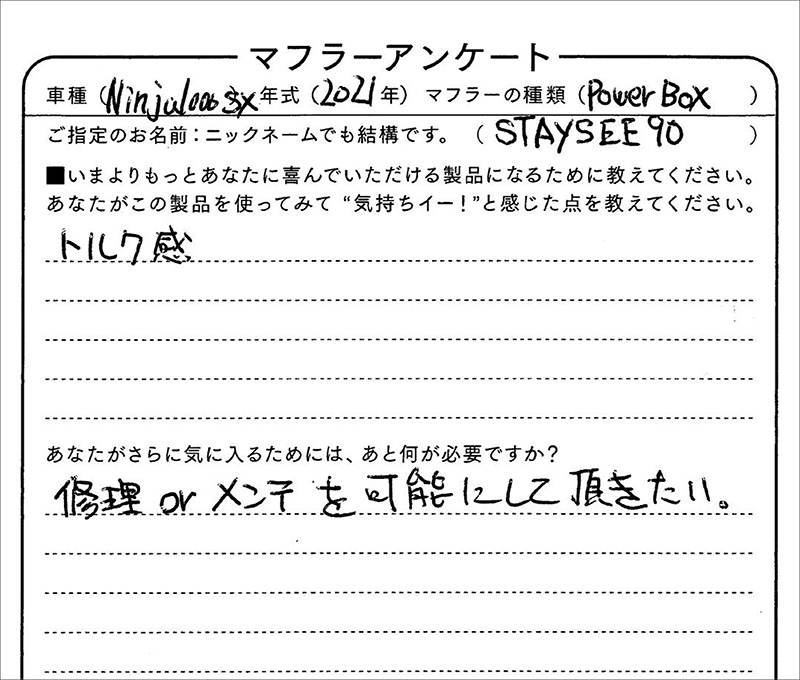 マフラーアンケート
車種（Ninja1000SX年式（2021年）マフラーの種類（Power Box　）
ご指定のお名前：ニックネームでも結構です。（STAYSEE90　）
■いまよりもっとあなたに喜んでいただける製品になるために教えてください。
あなたがこの製品を使ってみて“気持ちイー！”と感じた点を教えてください。
トルク感
あなたがさらに気に入るためには、あと何が必要ですか？
修理 or メンテを可能にして頂きたい。